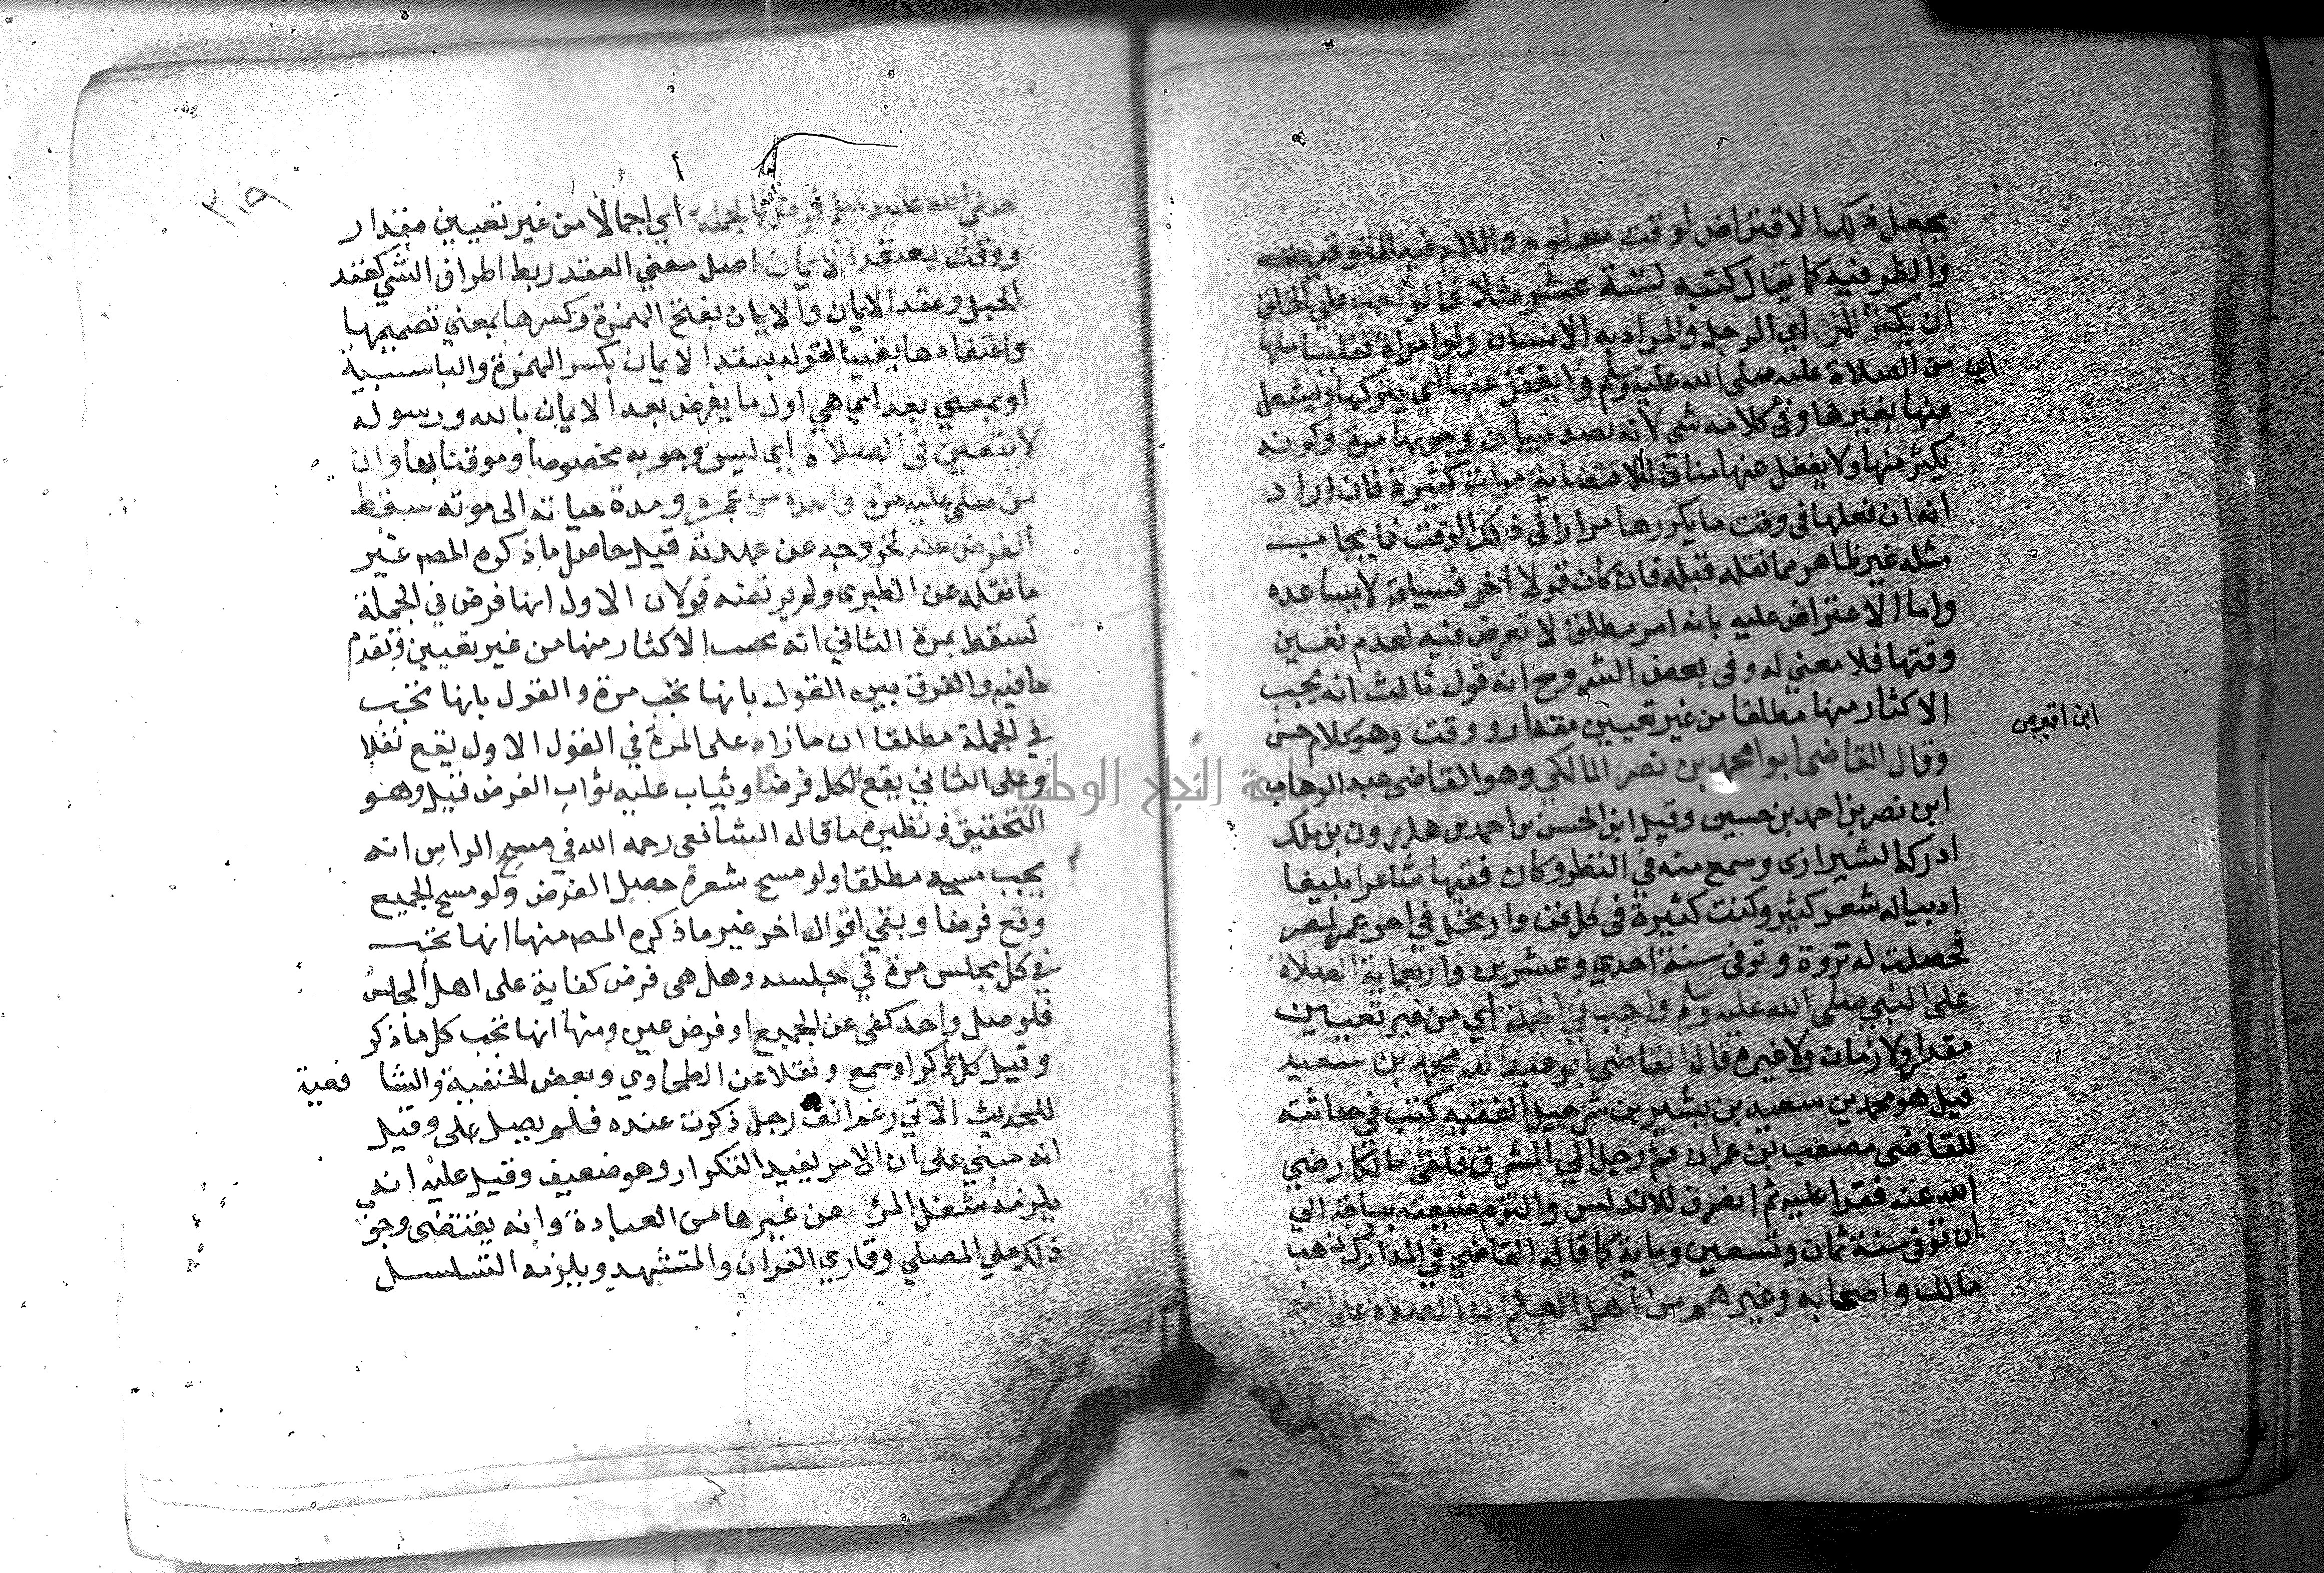 يجعل ذلك الاقتراض لوقت معلوم واللام فيه للتوقيت
والظرفيه كما يقال كتبه لستة عشر مثلا فالواجب علي الخلق
ان يكثر المرء اي الرجل والمراد به الانسان ولو امراة تغليبا منها
اي من الصلاة عليه صلى الله عليه وسلم ولا يغفل عنها اي يتركها ويشغل
عنها بغيرها وفي كلامه شي لانه بصدد بيان وجوبها مرة وكونه
يكثر منها ولا يغفل عنها مناف له لاقتضايه مرات كثيرة فان اراد
انه ان فعلها في وقت ما يكررها مرارا في ذلك الوقت فايجاب
مثله غير ظاهر مما نقله قبله فان كان قولا اخر فسياقه لا يساعده
واما الاعتراض عليه بانه امر مطلق لا تعرض فيه لعدم تعيين
وقتها فلا معني له وفى بعض الشروح انه قول ثالث انه يجب
الاكثار منها مطلقا من غير تعيين مقدار ووقت وهو كلام حسن
وقال القاضى ابو محمد بن نصر المالكي وهو القاضى عبد الوهاب
ابن نصر بن احمد بن حسين وقيل ابن الحسن بن احمد بن هارون بن ملك
ادركه الشيرازى وسمع منه في النظر وكان فقيها شاعرا بليغا
اديبا له شعر كثير وكتب كثيرة فى كل فن وارتحل في اخر عمره لمصر
فحصلت له ثروة وتوفى سنة احدي وعشرين واربعماية الصلاة
على النبي صلى الله عليه وسلم واجب في الجملة اي من غير تعيين
مقدار ولا زمان ولا غيره قال القاضى ابو عبد الله محمد بن سعيد
قيل هو محمد بن سعيد بن بشير بن شرحبيل الفقيه كتب في حداثته
للقاضى مصعب بن عمران ثم رحل الي المشرق فلقى مالكا رضي
الله عنه فقرا عليه ثم انصرف للاندلس والتزم ضيعته بباجة الي
ان توفى سنة ثمان وتسعين وماية كما قاله القاضي في المدارك ذهب
مالك واصحابه وغيرهم من اهل العلم ان الصلاة على النبي
٣٠٩
صلى الله عليه وسلم فرض بالجملة اي اجمالا من غير تعيين مقدار
ووقت بعقد الايمان اصل معني العقد ربط اطراف الشي كعقد
الحبل وعقد الايمان والايمان بفتح الهمزة وكسرها بمعني تصميمها
واعتقادها يقينا لقوله بعقد الايمان بكسر الهمزة والبا سببية
او بمعني بعد اي هي اول ما يفرض بعد الايمان بالله ورسوله
لا يتعين في الصلاة اي ليس وجوبه مخصوصا وموقتا بها وان
من صلى عليه مرة واحدة من عمره ومدة حياته الى موته سقط
الفرض عنه لخروجه عن عهدته قيل حاصل ما ذكره المصر غير
ما نقله عن الطبرى ولم يرتضه قولان الاول انها فرض في الجملة
تسقط بمرة الثاني انه يجب الاكثار منها من غير تعيين وتقدم
ما فيه والفرق بين القول بانها تجب مرة والقول بانها تجب
في الجملة مطلقا ان ما زاد على المرة في القول الاول يقع نفلا
وعلى الثاني يقع الكل فرضا ويثاب عليه ثواب الفرض قيل وهو
التحقيق ونظيره ما قاله الشافعى رحمه الله في مسح الراس انه
يجب مسحه مطلقا ولو مسح شعرة حصل الفرض ولو مسح الجميع
وقع فرضا وبقي اقوال اخر غير ما ذكره المصر منها انها تجب
في كل مجلس مرة في جلسه وهل هى فرض كفاية على اهل المجلس
فلو صلى واحد كفى عن الجميع او فرض عين ومنها انها تجب كل ما ذكر
وقيل كل ذكر او سمع ونقلا عن الطحاوي وبعض الحنفية والشا فعية
للحديث الاتي رغم انف رجل ذكرت عنده فلم يصل على وقيل
انه مبني على ان الامر يفيد التكرار وهو ضعيف وقيل عليه انه
يلزمه شغل المرء عن غيرها من العبادة وانه يقتضى وجوب
ذلك علي المصلي وقاري القران والمتشهد ويلزمه التسلسل
جامعة النجاح الوطنية